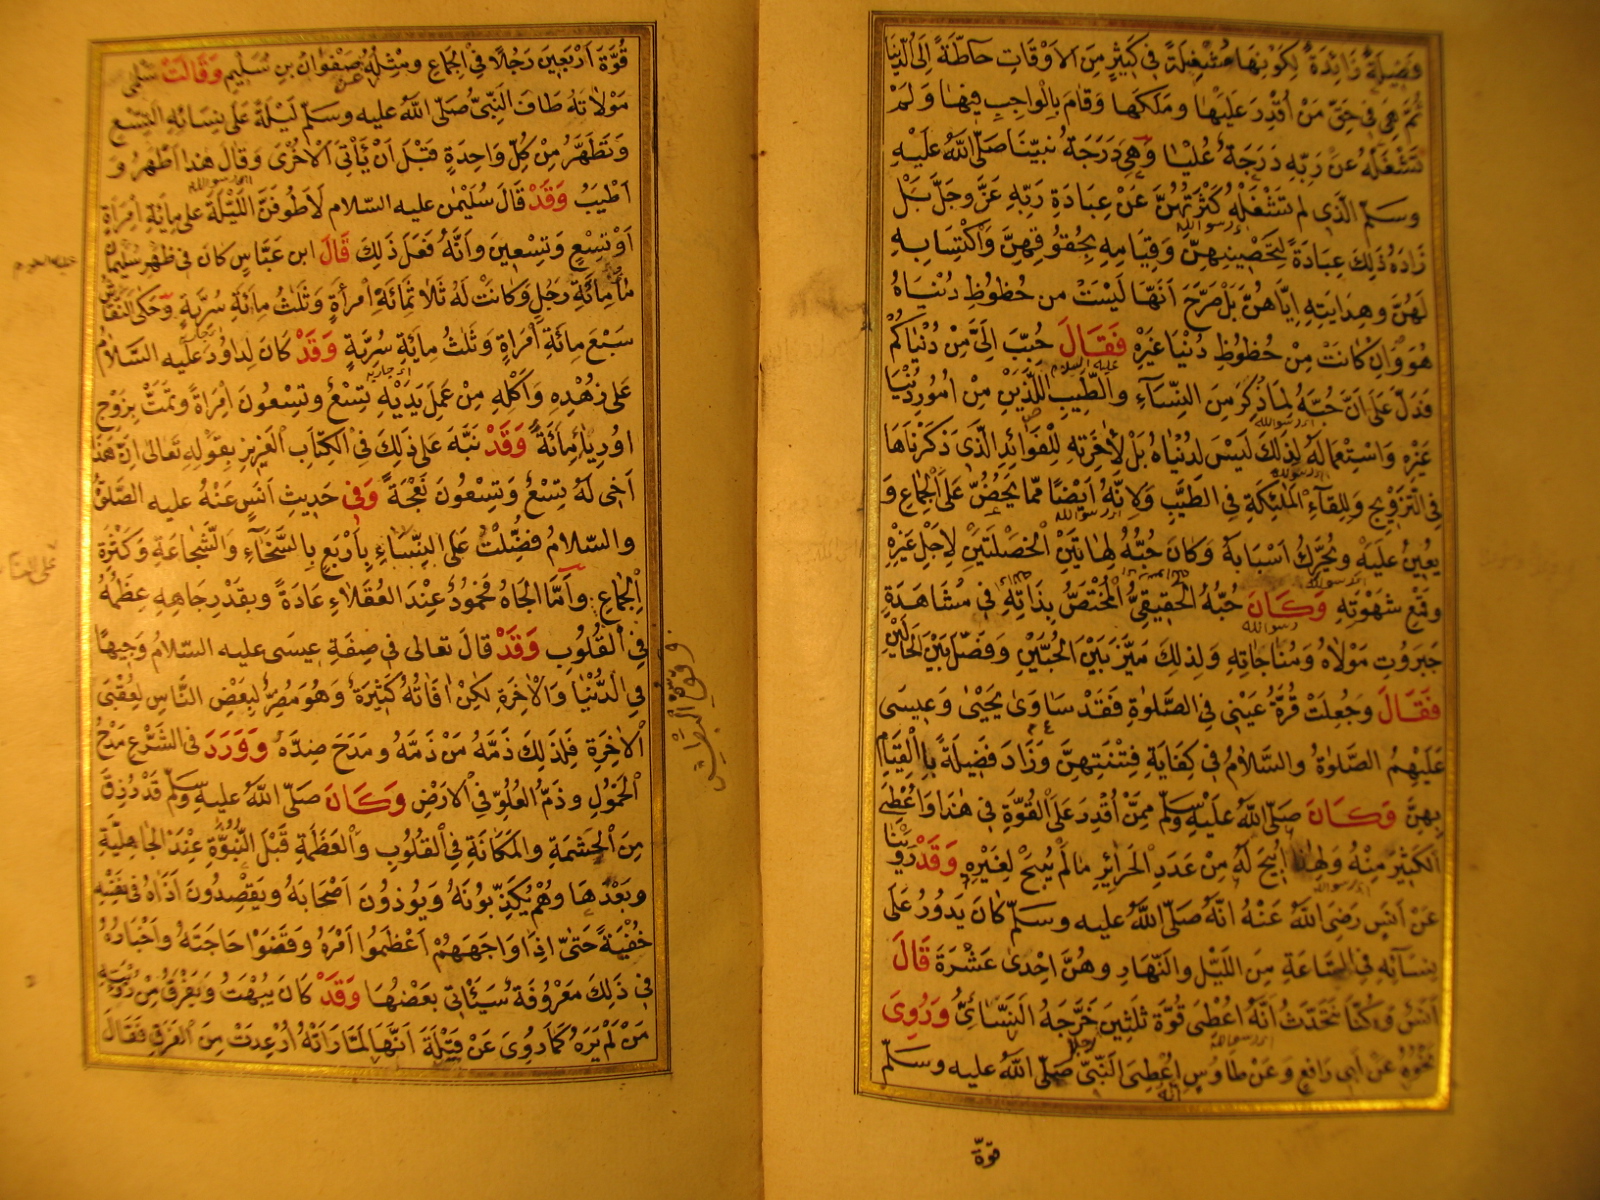 فَضِيلَةٌ زَائِدَةٌ لِكَوْنِهَا مُشْغِلَةً فِي كَثِيرٍ مِنَ الْاَوْقَاتِ حَاطَّةً اِلَى الدُّنْيَا
ثُمَّ هِيَ فِي حَقِّ مَنْ اُقْدِرَ عَلَيْهَا وَمَلَكَهَا وَقَامَ بِالْوَاجِبِ فِيهَا وَلَمْ
تَشْغَلْهُ عَنْ رَبِّهِ دَرَجَةٌ عُلْيَا وَهِيَ دَرَجَةُ نَبِيِّنَا صَلَّى اللهُ عَلَيْهِ
وَسَلَّمَ الَّذِي لَمْ تَشْغَلْهُ كَثْرَتُهُنَّ عَنْ عِبَادَةِ رَبِّهِ عَزَّ وَجَلَّ بَلْ
زَادَهُ ذَلِكَ عِبَادَةً لِتَحْصِينِهِنَّ وَقِيَامِهِ بِحُقُوقِهِنَّ وَاكْتِسَابِهِ
لَهُنَّ وَهِدَايَتِهِ اِيَّاهُنَّ بَلْ صَرَّحَ اَنَّهَا لَيْسَتْ مِنْ حُظُوظِ دُنْيَاهُ
هُوَ وَاِنْ كَانَتْ مِنْ حُظُوظِ دُنْيَا غَيْرِهِ فَقَالَ حُبِّبَ اِلَيَّ مِنْ دُنْيَاكُمْ
فَدَلَّ عَلَى اَنَّ حُبَّهُ لِمَا ذُكِرَ مِنَ النِّسَاءِ وَالطِّيبِ اللَّذَيْنِ مِنْ اُمُورِ دُنْيَا
غَيْرِهِ وَاسْتِعْمَالَهُ لِذَلِكَ لَيْسَ لِدُنْيَاهُ بَلْ لِاٰخِرَتِهِ لِلْفَوَائِدِ الَّذِي ذَكَرْنَاهَا
فِي التَّزْوِيجِ وَلِلِقَاءِ الْمَلٰئِكَةِ فِي الطِّيبِ وَلِاَنَّهُ اَيْضًا مِمَّا يَحُضُّ عَلَى الْجِمَاعِ وَ
يُعِينُ عَلَيْهِ وَيُحَرِّكُ اَسْبَابَهُ وَكَانَ حُبُّهُ لِهَاتَيْنِ الْخَصْلَتَيْنِ لِاَجْلِ غَيْرِهِ
وَقَمْعِ شَهْوَتِهِ وَكَانَ حُبُّهُ الْحَقِيقِيُّ الْمُخْتَصُّ بِذَاتِهِ فِي مُشَاهَدَةِ
جَبَرُوتِ مَوْلَاهُ وَمُنَاجَاتِهِ وَلِذَلِكَ مَيَّزَ بَيْنَ الْحُبَّيْنِ وَفَصَلَ بَيْنَ الْحَالَيْنِ
فَقَالَ وَجُعِلَتْ قُرَّةُ عَيْنِي فِي الصَّلٰوةِ فَقَدْ سَاوَى يَحْيٰى وَعِيسٰى
عَلَيْهِمُ الصَّلٰوةُ وَالسَّلَامُ فِي كِفَايَةِ فِتْنَتِهِنَّ وَزَادَ فَضِيلَةً بِالْقِيَامِ
بِهِنَّ وَكَانَ صَلَّى اللهُ عَلَيْهِ وَسَلَّمَ مِمَّنْ اُقْدِرَ عَلَى الْقُوَّةِ فِي هٰذَا وَاُعْطِيَ
الْكَثِيرَ مِنْهُ وَلِهٰذَا اُبِيحَ لَهُ مِنْ عَدَدِ الْحَرَائِرِ مَا لَمْ يُبَحْ لِغَيْرِهِ وَقَدْ رُوِّينَا
عَنْ اَنَسٍ رَضِيَ اللهُ عَنْهُ اَنَّهُ صَلَّى اللهُ عَلَيْهِ وَسَلَّمَ كَانَ يَدُورُ عَلَى
نِسَائِهِ فِي السَّاعَةِ مِنَ اللَّيْلِ وَالنَّهَارِ وَهُنَّ اِحْدَى عَشْرَةَ قَالَ
اَنَسٌ وَكُنَّا نَتَحَدَّثُ اَنَّهُ اُعْطِيَ قُوَّةَ ثَلٰثِينَ خَرَّجَهُ النَّسَائِيُّ وَرُوِيَ
نَحْوُهُ عَنْ اَبِي رَافِعٍ وَعَنْ طَاوُسٍ اُعْطِيَ النَّبِيُّ صَلَّى اللهُ عَلَيْهِ وَسَلَّمَ
قوّة
قُوَّةَ اَرْبَعِينَ رَجُلًا فِي الْجِمَاعِ وَمِثْلُهُ عَنْ صَفْوَانَ بْنِ سُلَيْمٍ وَقَالَتْ سَلْمٰى
مَوْلَاتُهُ طَافَ النَّبِيُّ صَلَّى اللهُ عَلَيْهِ وَسَلَّمَ لَيْلَةً عَلَى نِسَائِهِ التِّسْعِ
وَتَطَهَّرَ مِنْ كُلِّ وَاحِدَةٍ قَبْلَ اَنْ يَأْتِيَ الْاُخْرَى وَقَالَ هٰذَا اَطْهَرُ وَ
اَطْيَبُ وَقَدْ قَالَ سُلَيْمٰنُ عَلَيْهِ السَّلَامُ لَاَطُوفَنَّ اللَّيْلَةَ عَلَى مِائَةِ امْرَاَةٍ
اَوْ تِسْعٍ وَتِسْعِينَ وَاَنَّهُ فَعَلَ ذَلِكَ قَالَ ابْنُ عَبَّاسٍ كَانَ فِي ظَهْرِ سُلَيْمَانَ
مَاءُ مِائَةِ رَجُلٍ وَكَانَتْ لَهُ ثَلَاثُمِائَةِ امْرَأَةٍ وَثَلٰثُ مِائَةِ سُرِّيَّةٍ وَحَكَى النَّقَّاشُ
سَبْعَ مِائَةِ امْرَاَةٍ وَثَلٰثَ مِائَةِ سُرِّيَّةٍ وَقَدْ كَانَ لِدَاوُدَ عَلَيْهِ السَّلَامُ
عَلَى زُهْدِهِ وَاَكْلِهِ مِنْ عَمَلِ يَدَيْهِ تِسْعٌ وَتِسْعُونَ امْرَاَةً وَتَمَّتْ بِزَوْجِ
اُورِيَاءَ مِائَةً وَقَدْ نَبَّهَ عَلَى ذَلِكَ فِي الْكِتَابِ الْعَزِيزِ بِقَوْلِهِ تَعَالَى اِنَّ هٰذَا
اَخِي لَهُ تِسْعٌ وَتِسْعُونَ نَعْجَةً وَفِي حَدِيثِ اَنَسٍ عَنْهُ عَلَيْهِ الصَّلٰوةُ
وَالسَّلَامُ فُضِّلْتُ عَلَى النِّسَاءِ بِاَرْبَعٍ بِالسَّخَاءِ وَالشَّجَاعَةِ وَكَثْرَةِ
الْجِمَاعِ وَاَمَّا الْجَاهُ فَمَحْمُودٌ عِنْدَ الْعُقَلَاءِ عَادَةً وَبِقَدْرِ جَاهِهِ عِظَمُهُ
فِي الْقُلُوبِ وَقَدْ قَالَ تَعَالَى فِي صِفَةِ عِيسَى عَلَيْهِ السَّلَامُ وَجِيهًا
فِي الدُّنْيَا وَالْاٰخِرَةِ لٰكِنْ اٰفَاتُهُ كَثِيرَةٌ وَهُوَ مُضِرٌّ لِبَعْضِ النَّاسِ لِعُقْبَى
الْاٰخِرَةِ فَلِذَلِكَ ذَمَّهُ مَنْ ذَمَّهُ وَمَدَحَ ضِدَّهُ وَوَرَدَ فِي الشَّرْعِ مَدْحُ
الْخُمُولِ وَذَمُّ الْعُلُوِّ فِي الْاَرْضِ وَكَانَ صَلَّى اللهُ عَلَيْهِ وَسَلَّمَ قَدْ رُزِقَ
مِنَ الْحِشْمَةِ وَالْمَكَانَةِ فِي الْقُلُوبِ وَالْعَظَمَةِ قَبْلَ النُّبُوَّةِ عِنْدَ الْجَاهِلِيَّةِ
وَبَعْدَهَا وَهُمْ يُكَذِّبُونَهُ وَيُؤْذُونَ اَصْحَابَهُ وَيَقْصِدُونَ اَذَاهُ فِي نَفْسِهِ
خُفْيَةً حَتَّى اِذَا وَاجَهَهُمْ اَعْظَمُوا اَمْرَهُ وَقَضَوْا حَاجَتَهُ وَاَخْبَارُهُ
فِي ذَلِكَ مَعْرُوفَةٌ سَيَأْتِي بَعْضُهَا وَقَدْ كَانَ يُبْهَتُ وَيَفْرَقُ مِنْ رُؤْيَتِهِ
مَنْ لَمْ يَرَهُ كَمَا رُوِيَ عَنْ قَيْلَةَ اَنَّهَا لَمَّا رَاَتْهُ اُرْعِدَتْ مِنَ الْفَرَقِ فَقَالَ
وقوّة البطش